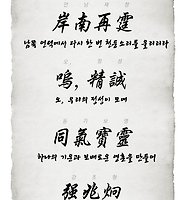 안남재정
岸南再霆
남쪽 언덕에서 다시 한 번 천둥소리를 울리리라
오, 정성
嗚, 精誠
오, 우리의 정성이 모여
동기보령
同氣寶靈
하나의 기운과 보배로운 영혼을 만들어
强兆炯